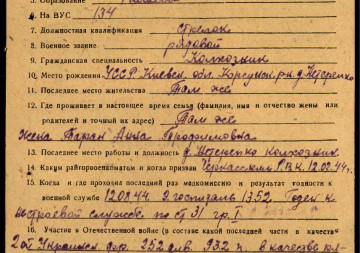 5. Образование
6. На ВУС 134
7. Должностная квалификация стрелок
8. Военное звание рядовой
9. Гражданская специальность Колхозник
10. Место рождения УССР Киевск. обл. Корсунск. р-н.
11. Последнее место жительства Там же
12. Где проживает в настоящее время семья (фамилия, имя и отчество жены или
родителей и точный их адрес) Там же
Жена Баран Анна Трофимовна
13. Последнее место работы и должность колхозник
14. Каким райгорвоенкоматом и когда призван Черкасским Р.В.К. 12.02.44 г.
15. Когда и где проходил последний раз медкомиссию и результат годности к
военной службе 12.08.44. госпиталь 1352 Годен к
строевой службе по ст 31 гр. I
16. Участие в Отечественной войне (в составе какой последней части в качестве
2ой Украинск. фр. 252 див. 932 п. в качестве